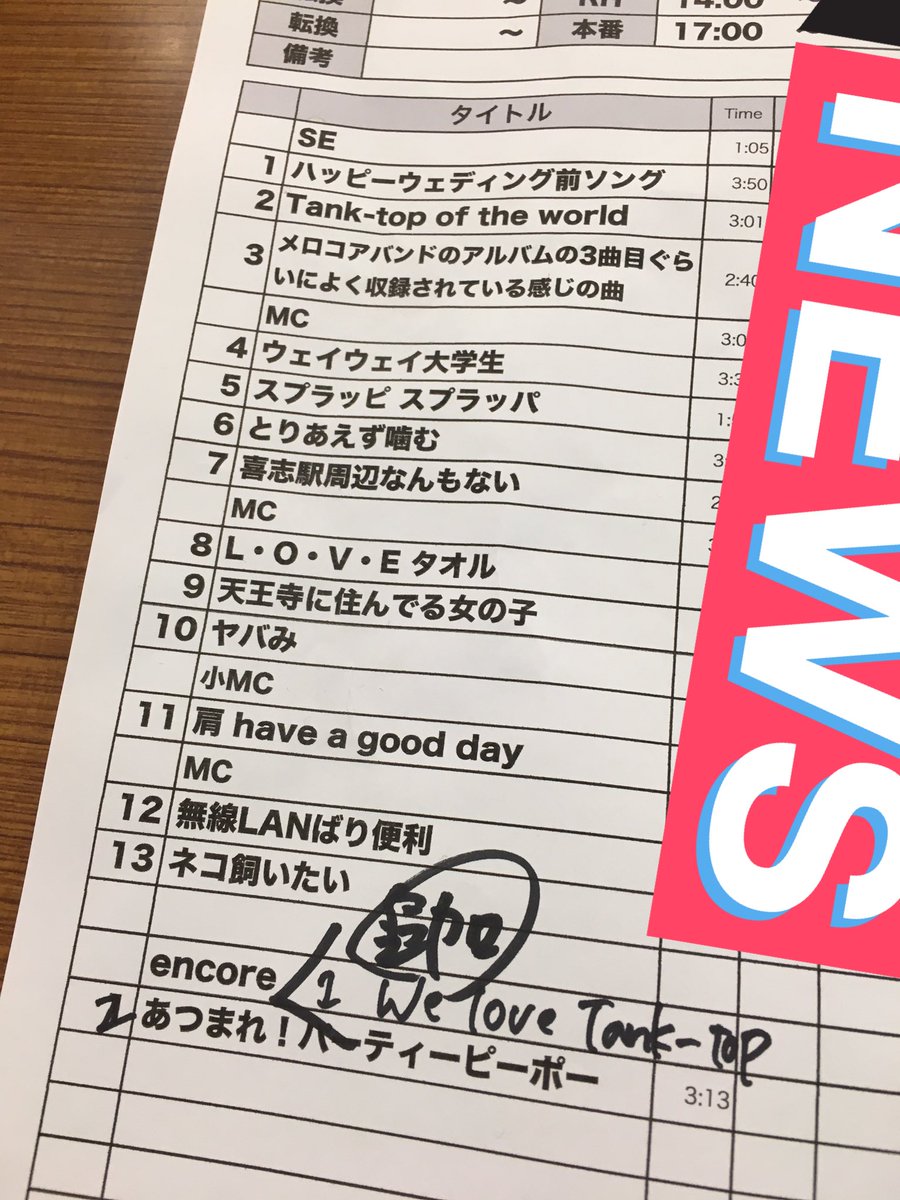 転換 ～ RH 14:00 ～
転換 ～ 本番 17:00
備考
タイトル Time
SE 1:05
1 ハッピーウェディング前ソング 3:50
2 Tank-top of the world 3:01
3 メロコアバンドのアルバムの3曲目ぐら
いによく収録されている感じの曲 2:40
MC
4 ウェイウェイ大学生
5 スプラッピ スプラッパ
6 とりあえず噛む
7 喜志駅周辺なんもない
MC
8 L・O・V・E タオル
9 天王寺に住んでる女の子
10 ヤバみ
小MC
11 肩 have a good day
MC
12 無線LANばり便利
13 ネコ飼いたい
encore
1 We love Tank-top
2 あつまれ！パーティーピーポー
3:13
NEWS